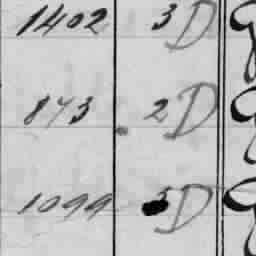 1402 3 D
873 2 D
1099 3 D